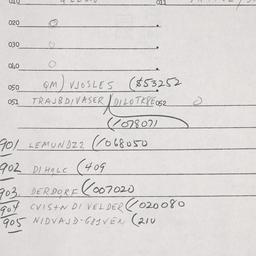 020 O
030 O
040 O
050 GM) VJOSLES ($53252
051 TRAJBDIVASER / DILOTKYE 052 O
(/078071
901 LEMUNDZZ (/068050
902 DIHALC (409
903. DERDORF (/007020
904 CVISTN DI VELDER (/020080
905 NIDVAJD-G83VEN (210